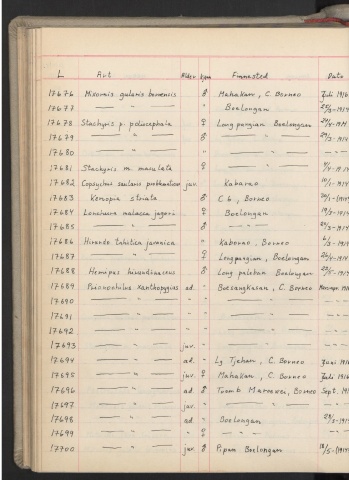 L Art Alder Kjønn Finnested Dato
17676 Mixornis gularis borneensis ♂ Mahakam, C. Borneo Juli 1916
17677 — " — " Boelongan 25/3-1914
17678 Stachyris p. poliocephala ♀ Long pangian Boelongan 24/4-1914
17679 — " — ♂ — " — 29/3-1914
17680 — " — " — " —
17681 Stachyris m. maculata ♀ — " — 9/4-1914
17682 Copsychus saularis juv. Kaburao 10/1-1914
17683 Kenopia striata ♂ C 6, Borneo
17684 Lonchura malacca jagori ♀ Boelongan 19/3-1914
17685 — " — ♂ — " — 25/3-1914
17686 Hirundo tahitica javanica " Kaborao, Borneo 6/3-1914
17687 — " — ♀ Longpangian, Boelongan 26/4-1914
17688 Hemipus hirundinaceus ♂ Long paleban Boelongan
17689 Prionochilus xanthopygius ad. - Boesangkasan, C. Borneo
17690 — " — " - — " —
17691 — " — " - — " —
17692 — " — " - — " —
17693 — " — juv. - — " —
17694 — " — ad. - Lg Tjehan, C. Borneo Juni
17695 — " — juv. ♀ Mahakam, C. Borneo Juli 1916
17696 — " — ad. ♂ Toemb. Maroewei, Borneo Sept.
17697 — " — juv. " — " —
17698 — " — ad. " Boelongan 29/3-1914
17699 — " — " ♀ — " —
17700 — " — juv. ♂ Pipan Boelongan